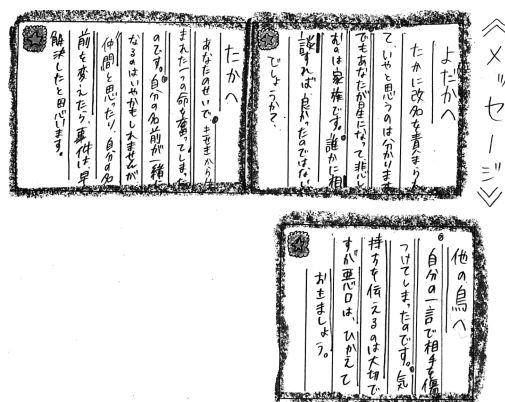 ≪メッセージ≫
よだかへ
たかに改名を責まられ
て、いやと思うのは分かります。
でもあなたが星になって悲し
むのは家族です。誰かに相
談すれば良かったのではない
でしょうかて、
たかへ
あなたのせいで、きせきから生
まれた一つの命を奪ってしまった
のです。自分の名前が一緒に
なるのはいやかもしれませんが
仲間と思ったり、自分の名
前を変えたら、事件は早く
解決したと思います。
他の鳥へ
自分の一言で相手を傷
つけてしまったのです。気
持ちを伝えるのは大切で
すが悪口は、ひかえて
おきましょう。